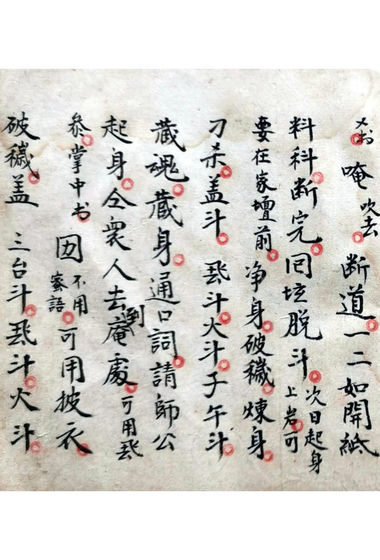 唵吹去断道一二如開紙
料科断完囘坛脱斗次日起身上岩可
要在家壇前净身破穢煉身
刀杀盖斗斗火斗子午斗
藏魂藏身通口詞請師公
起身令衆人去到庵處可用
叅掌中书不用蜜語可用披衣
破穢盖三台斗斗火斗